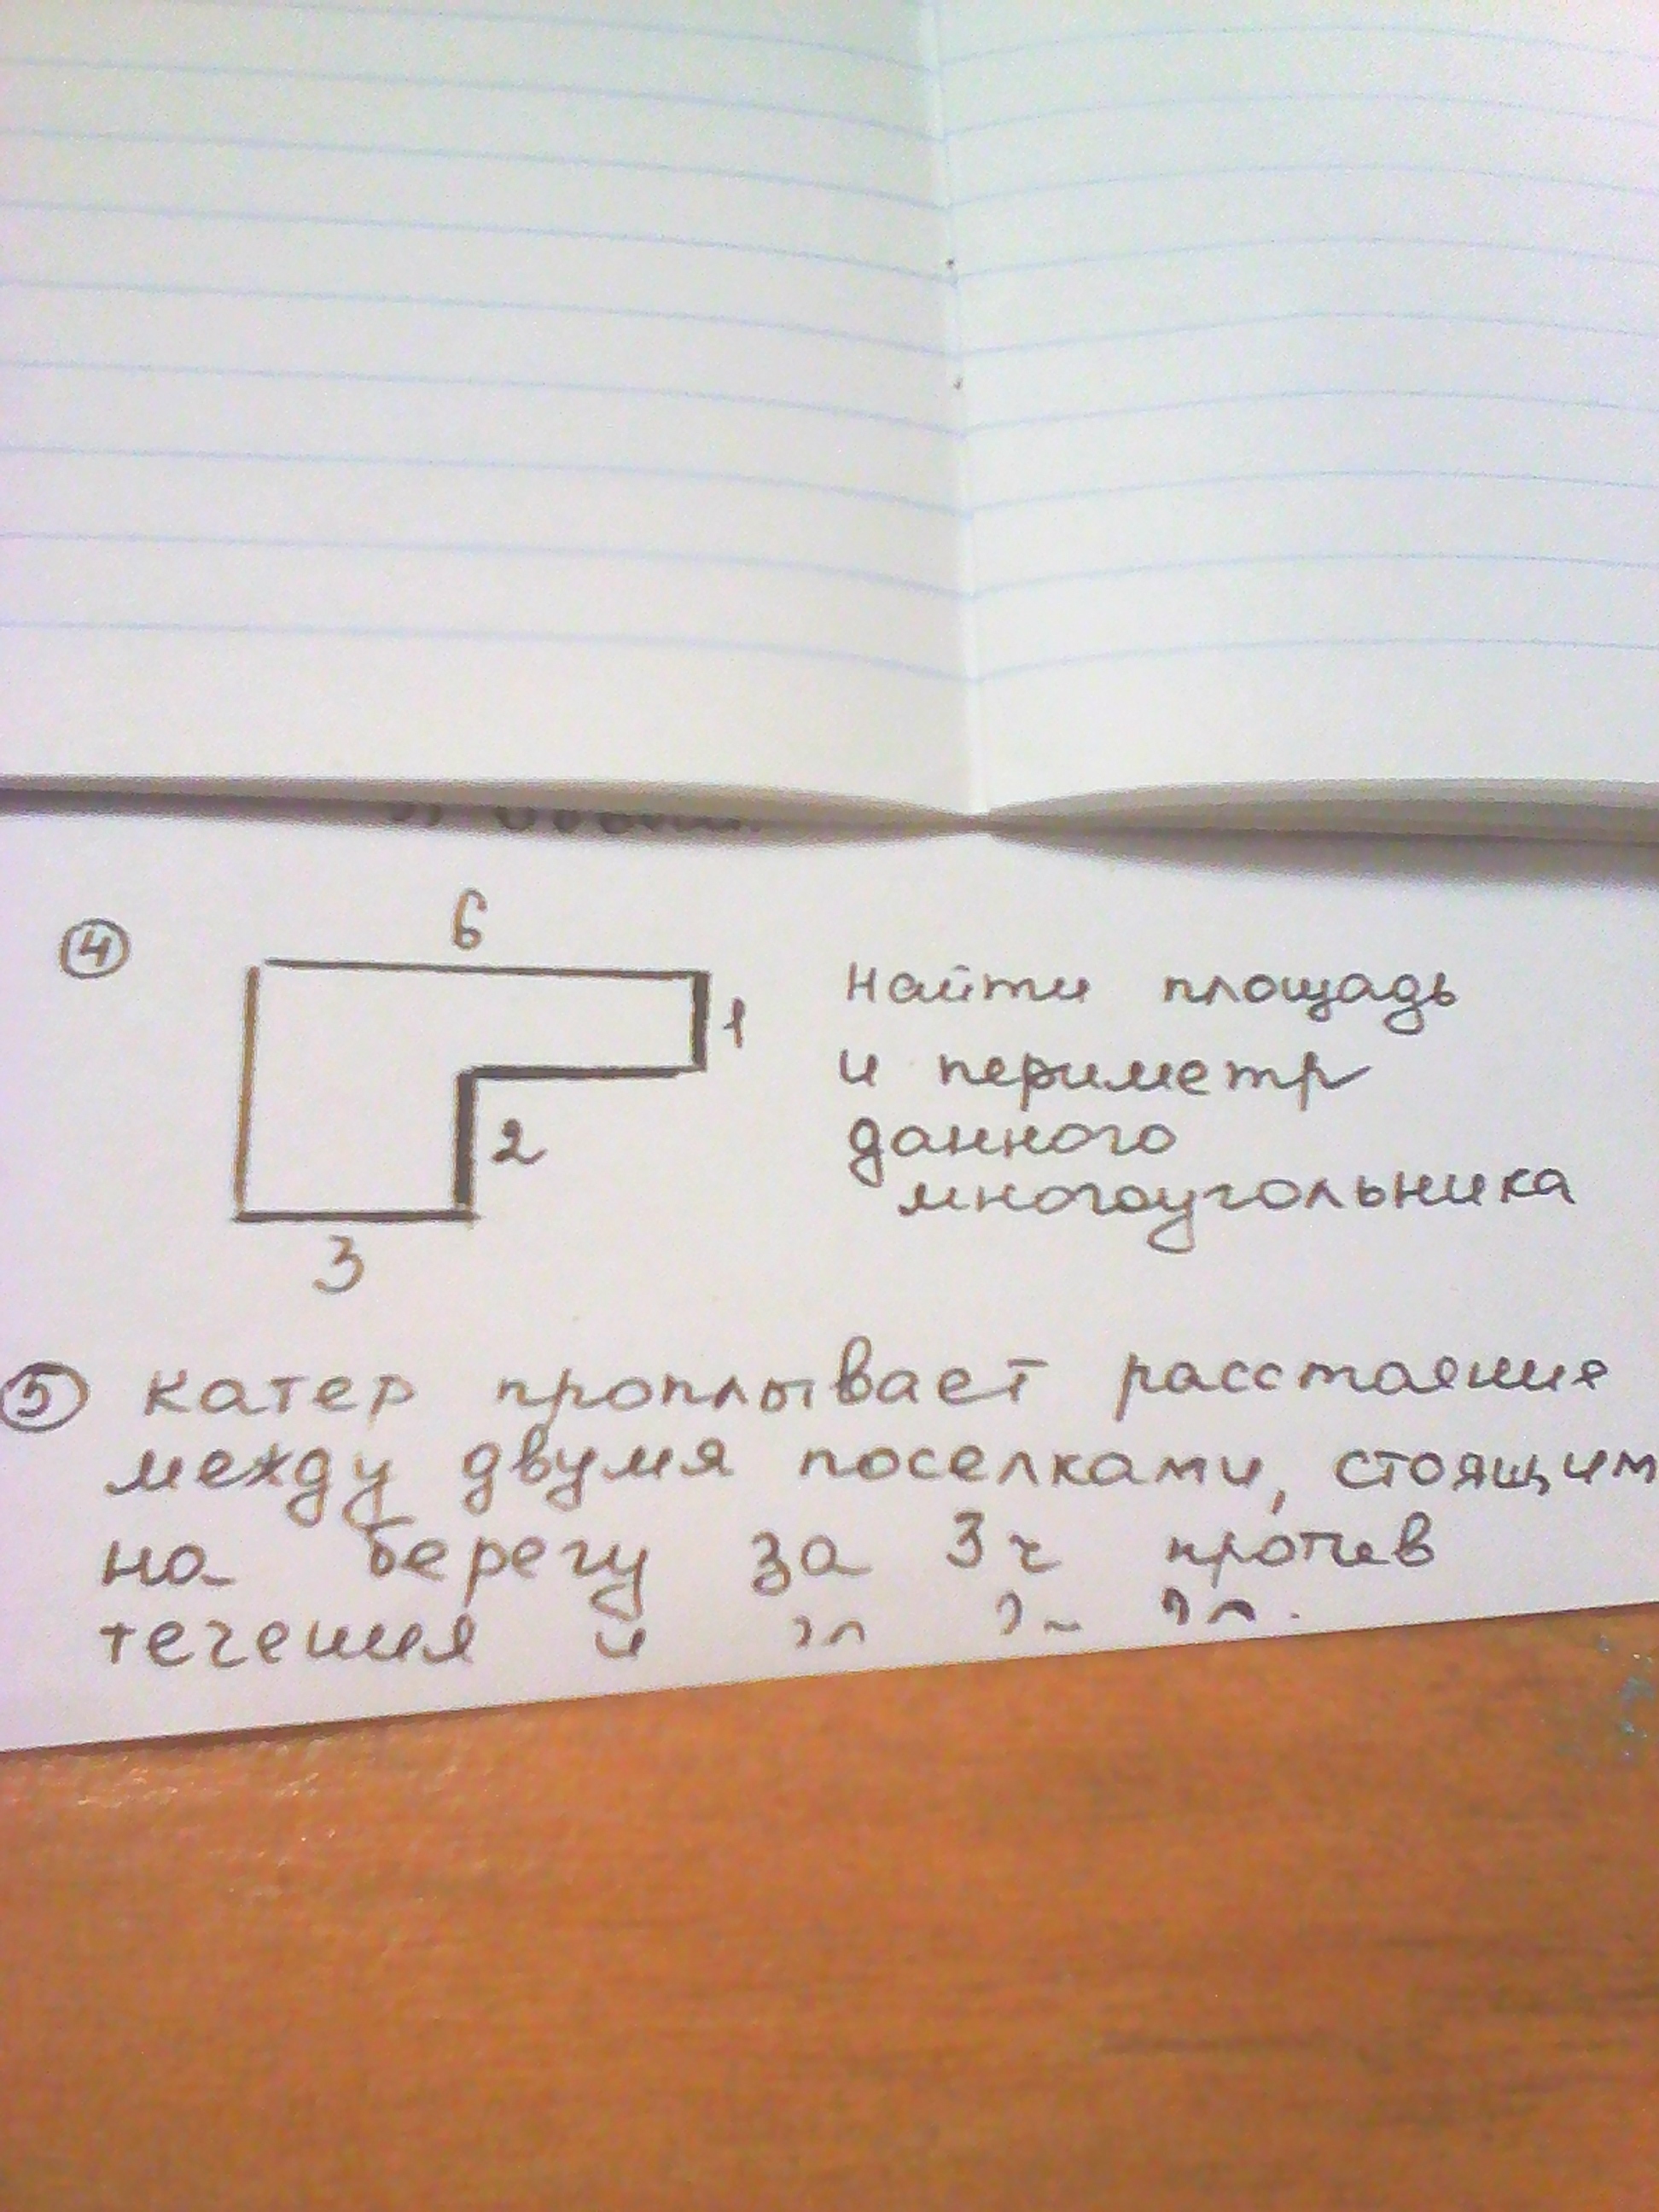 ④
6
1
2
3
Найти площадь
и периметр
данного
многоугольника
⑤ Катер проплывает расстояние
между двумя поселками, стоящим
на берегу за 3ч против
течения и